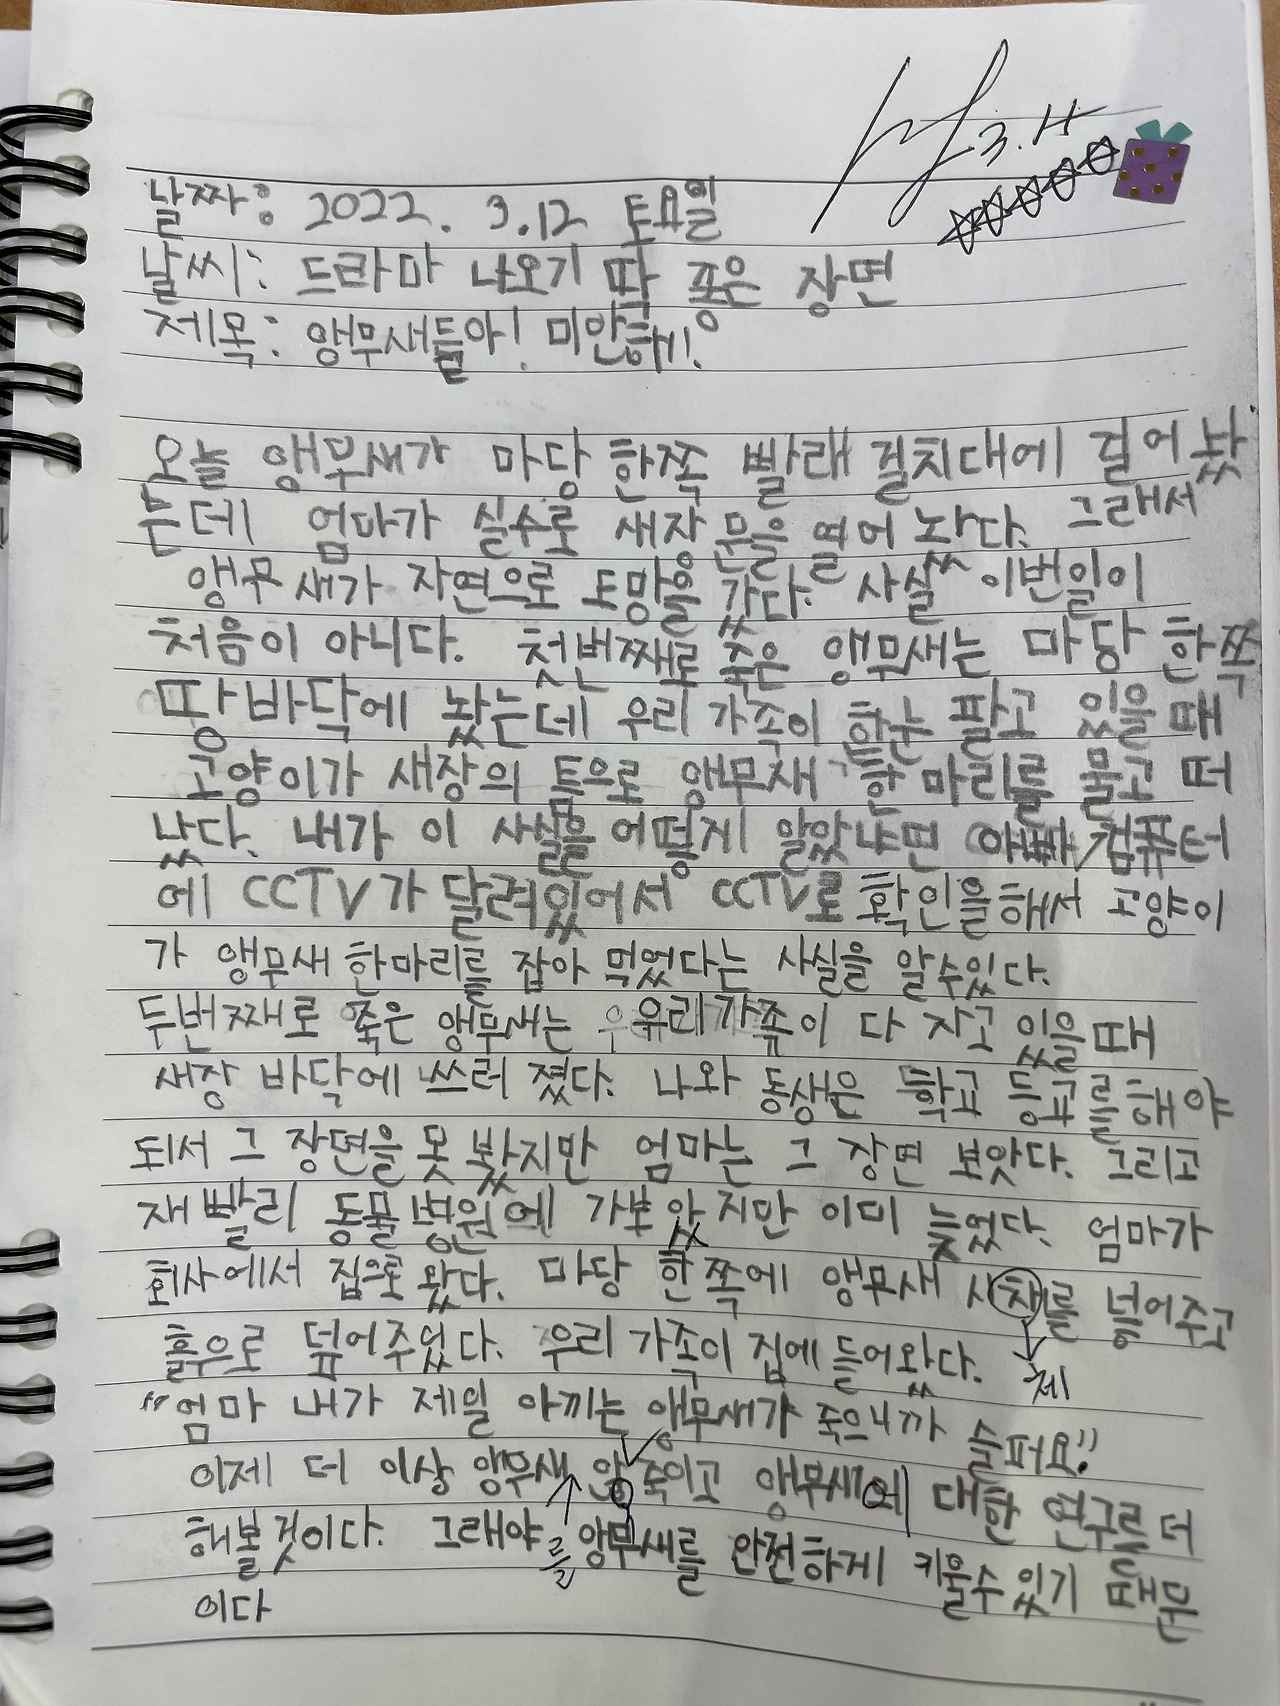 3.14
날짜: 2022. 3.12 토요일
날씨: 드라마 나오기 딱 좋은 장면
제목: 앵무새들아! 미안해!
오늘 앵무새가 마당 한쪽 빨래 걸치대에 걸어 놨
는데 엄마가 실수로 새장 문을 열어 놔다. 그래서
앵무새가 자연으로 도망을 갔다. 사실 이번일이
처음이 아니다. 첫번째로 죽은 앵무새는 마당 한쪽
땅바닥에 놨는데 우리 가족이 한눈 팔고 있을 때
고양이가 새장의 틈으로 앵무새 한 마리를 물고 떠
났다. 내가 이 사실을 어떻게 알았냐면 아빠 컴퓨터
에 CCTV가 달려있어서 CCTV로 확인을해서 고양이
가 앵무새 한마리를 잡아 먹었다는 사실을 알수있다.
두번째로 죽은 앵무새는 우리가족이 다 자고 있을때
새장 바닥에 쓰러 졌다. 나와 동생은 학교 등교를해야
되서 그 장면을 못 봤지만 엄마는 그 장면 보았다. 그리고
재빨리 동물병원에 가보았지만 이미 늦었다. 엄마가
회사에서 집으로 왔다. 마당 한쪽에 앵무새 시챠를 넣어주고
흙으로 덮어주었다. 우리 가족이 집에 들어왔다.
체
"엄마 내가 제일 아끼는 앵무새가 죽으니까 슬퍼요!"
이제 더 이상 앵무새 안 죽이고 앵무새에 대한 연구를 더
해볼것이다. 그래야 앵무새를 안전하게 키울수있기 때문
를
이다